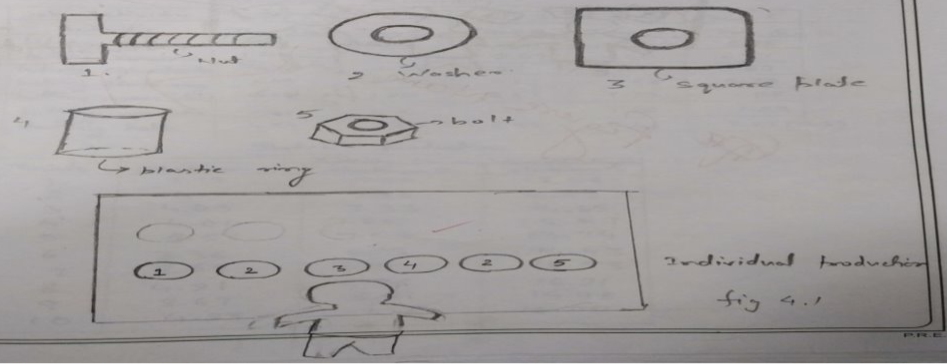 1. Nut
2 Washer
3 square plate
4 plastic ring
5 bolt
1 2 3 4 2 5
Individual production
fig 4.1
P.R.E